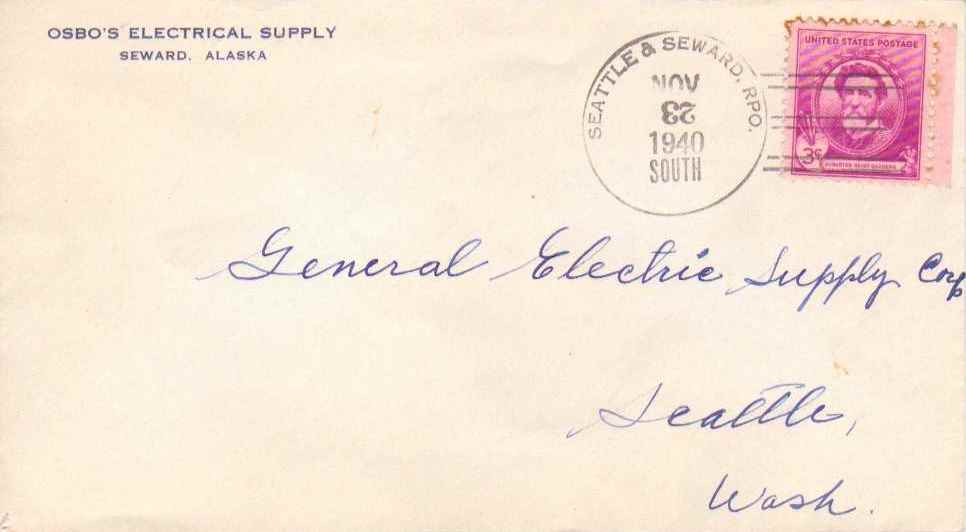 OSBO'S ELECTRICAL SUPPLY
SEWARD, ALASKA
SEATTLE & SEWARD, RPO.
NOV
23
1940
SOUTH
UNITED STATES POSTAGE
3¢
General Electric Supply Corp
Seattle,
Wash.